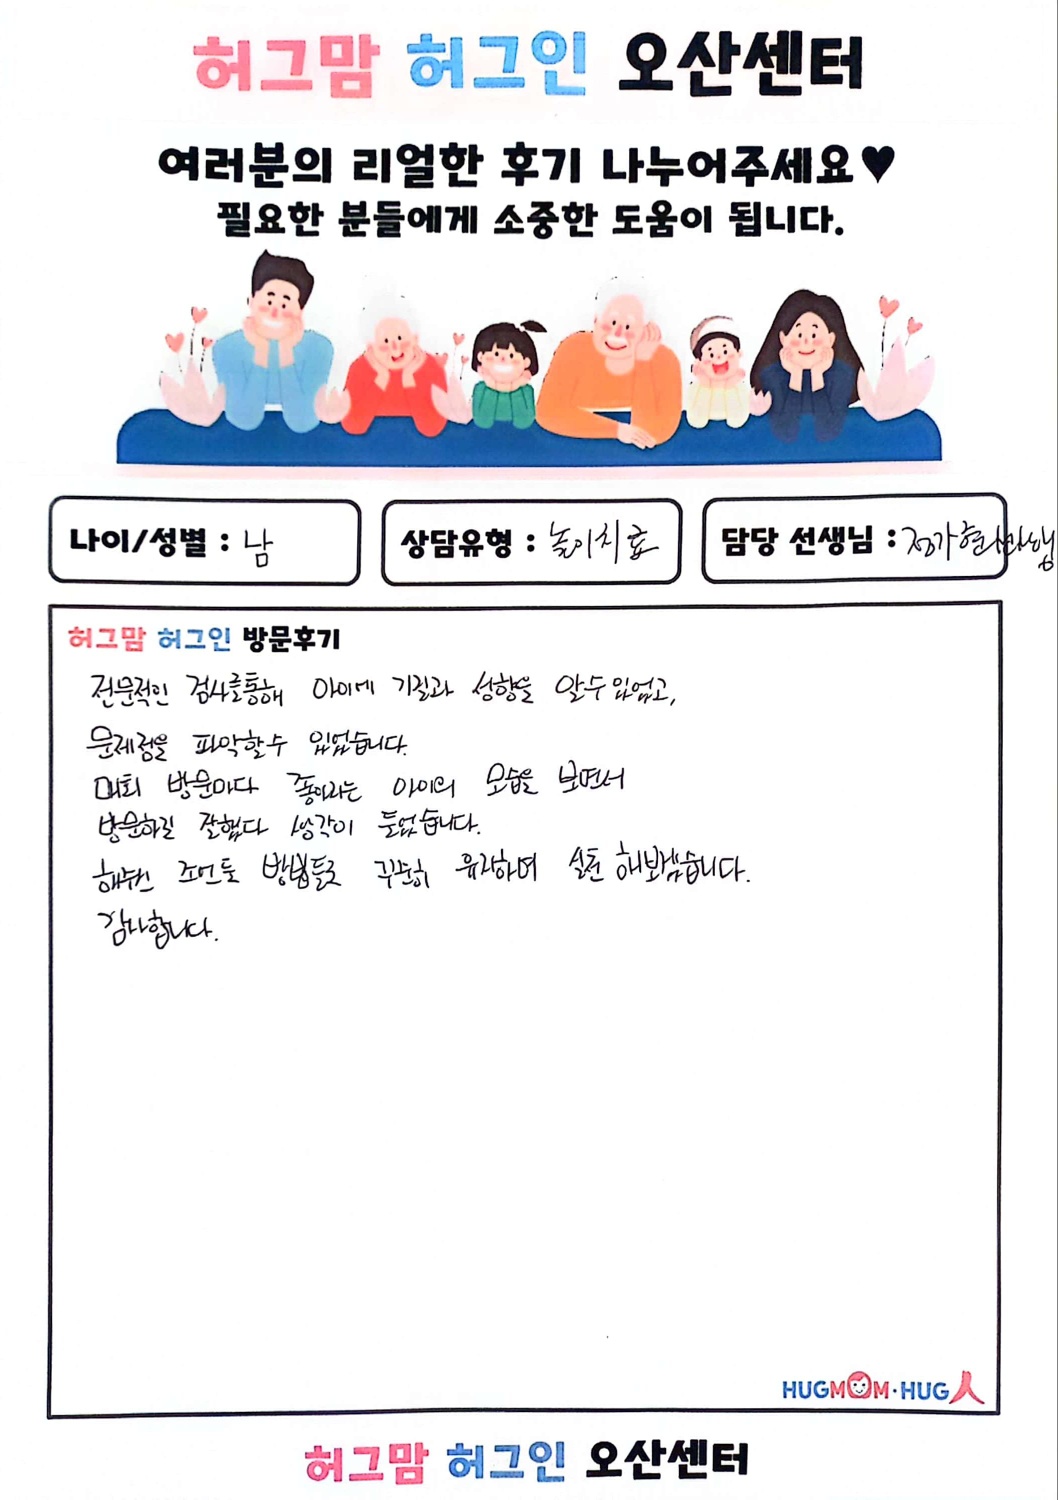 허그맘 허그인 오산센터
여러분의 리얼한 후기 나누어주세요♥
필요한 분들에게 소중한 도움이 됩니다.
나이/성별 : 남
상담유형 : 놀이치료
담당 선생님 : 정가현
허그맘 허그인 방문후기
전문적인 검사를통해 아이에 기질과 성향을 알수있었고,
문제점을 파악할수 있었습니다.
매회 방문마다 좋아라는 아이의 모습을 보면서
방문하길 잘했다 생각이 들었습니다.
해주신 조언들 꾸준히 유지하며 실천 해보겠습니다.
감사합니다.
HUGMOM·HUG人
허그맘 허그인 오산센터